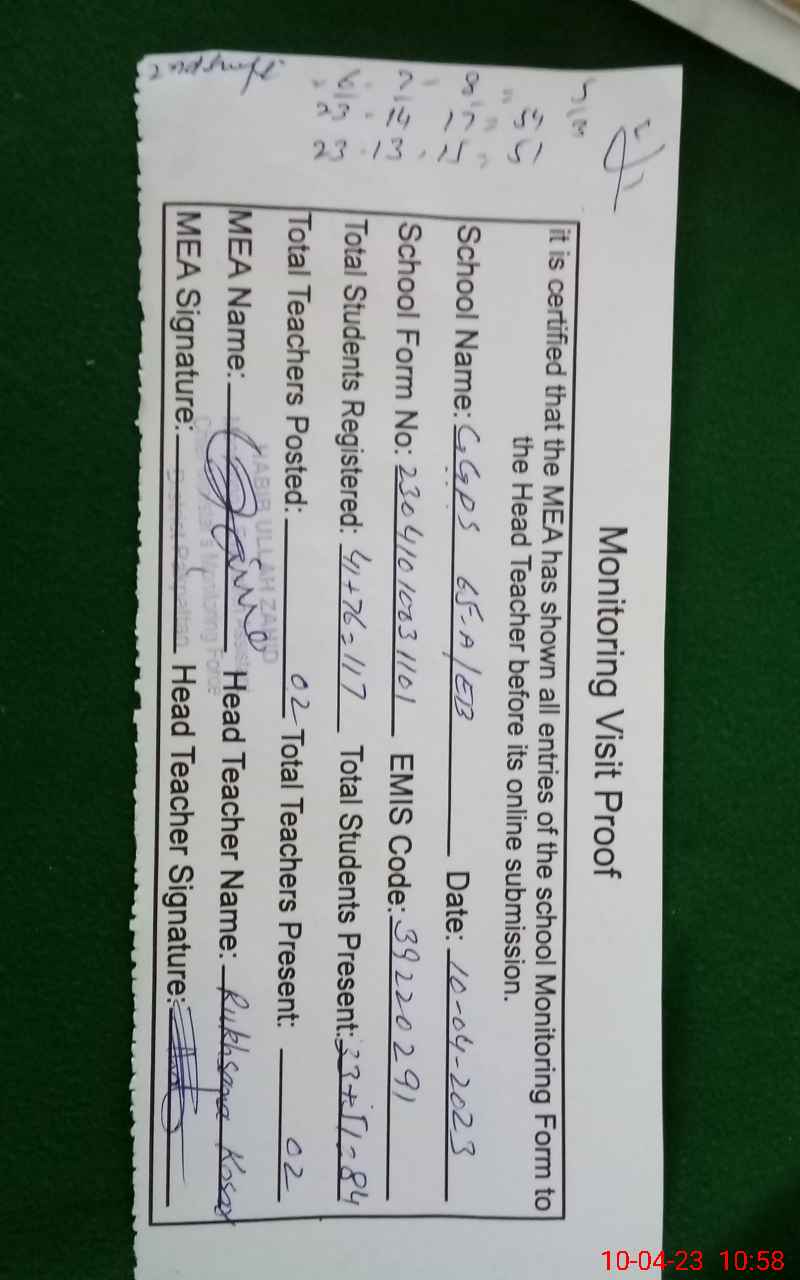 Monitoring Visit Proof
it is certified that the MEA has shown all entries of the school Monitoring Form to
the Head Teacher before its online submission.
School Name: GGPS 65-A/EB Date: 10-04-2023
School Form No: 23041010031101 EMIS Code: 39220291
Total Students Registered: 41+76=117 Total Students Present: 33+51=84
Total Teachers Posted: 02 Total Teachers Present: 02
MEA Name: Head Teacher Name: Rukhsana Kosar
HABIB ULLAH ZAHID
MEA Signature: Head Teacher Signature:
Monitoring Force
District Pakpattan
10-04-23 10:58